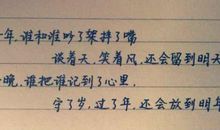 年,谁和谁吵了架拌了嘴
谈着天,笑着风,还会留到明天
晚,谁把谁记到了心里,
守了岁,过了年,还会放到明年